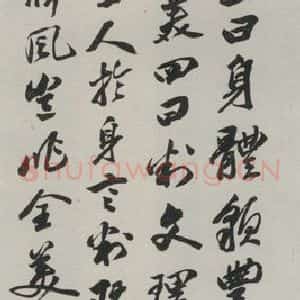 曰身體貌豐
美四曰判文理
人於身言判
風豈非全美
shufawang.CN